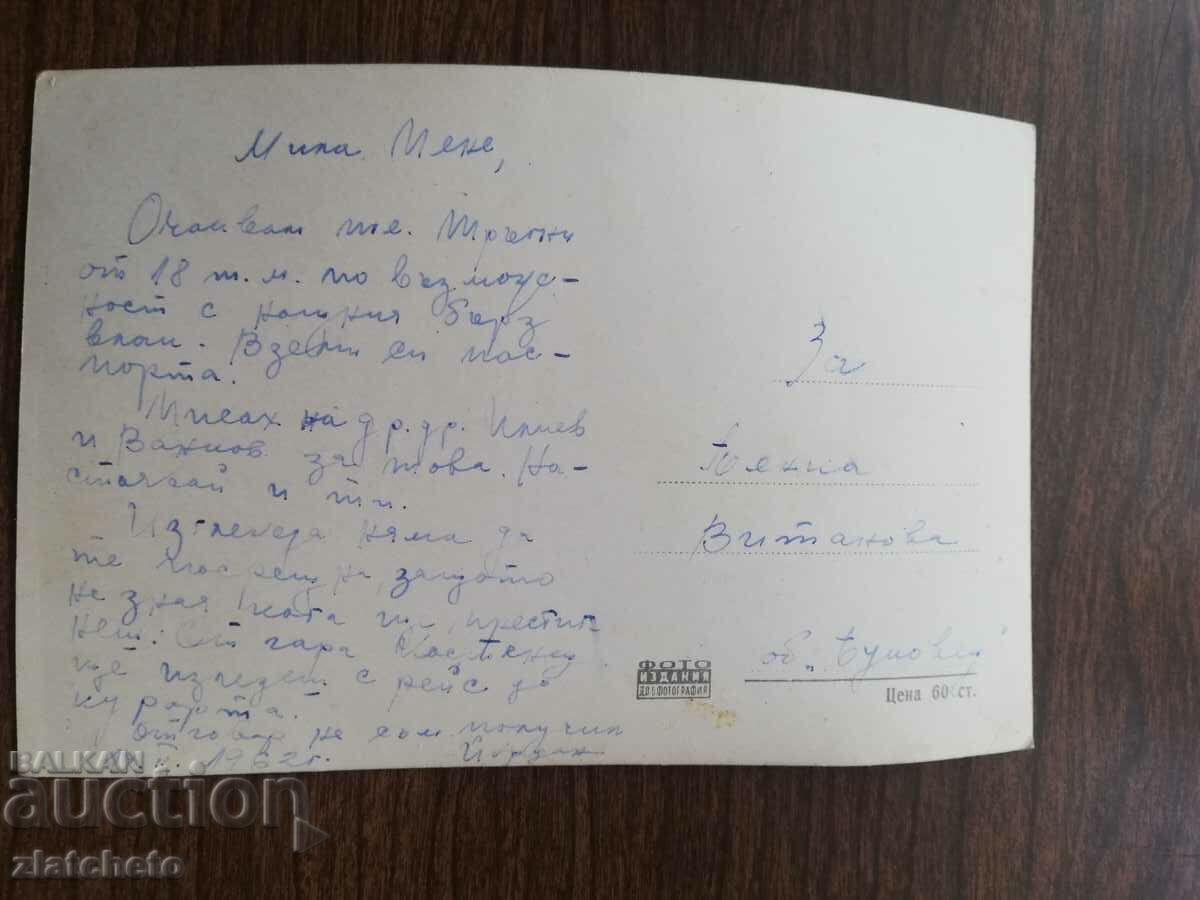 Мила Лене,
Очаквам те. Тръгни
от 18 т.м. по възмож-
ност с нощния бърз
влак. Вземи си пас-
порта.
Писах на др.др. Илиев
и Вахнов за това. На-
стоявай и ти.
Изглежда няма да
те посрещна, защото
не зная кога ще пристиг-
неш. От гара Костенец
ще излезеш с рейс до
курорта.
Отговор не съм получил
1962 г. Йордан
За
Витанова
ФОТО
ИЗДАНИЯ
ДСП ФОТОГРАФИЯ
Цена 60 ст.
BALKAN
auction
zlatcheto